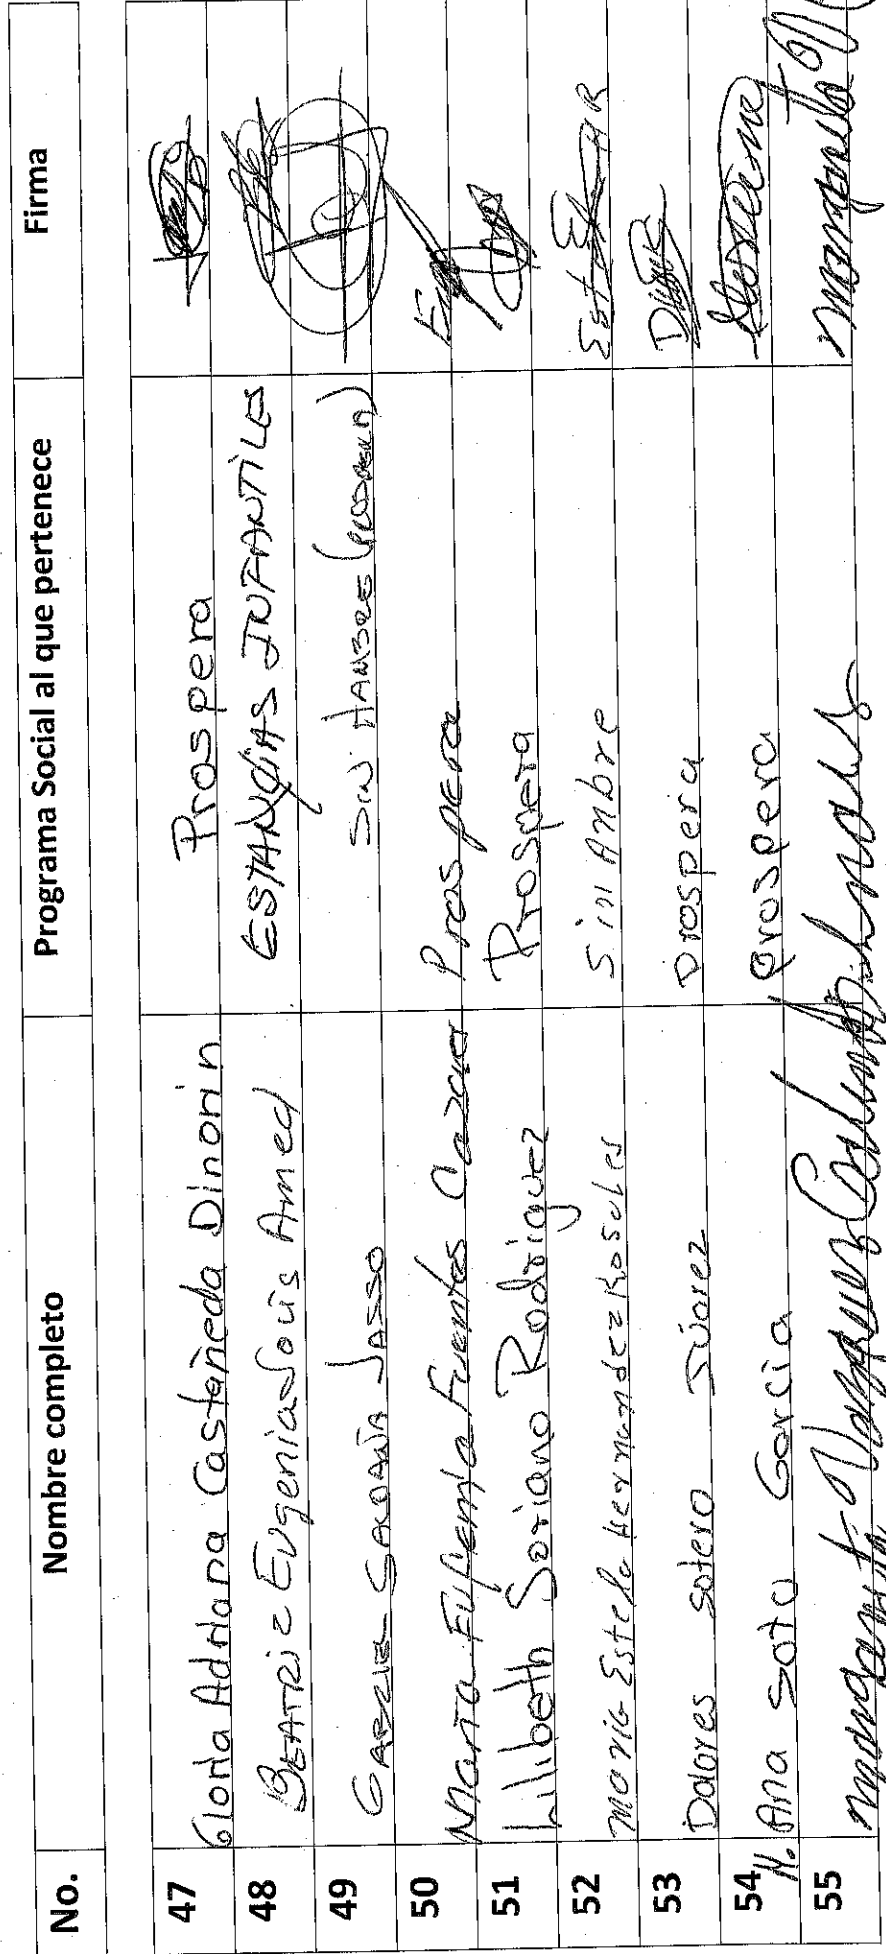 No. Nombre completo Programa Social al que pertenece Firma
47 Gloria Adriana Castañeda Dinorin Prospera
48 BEATRIZ EUgenia Solis Amed ESTANCIAS INFANTILES
49 GABRIEL SALDAÑA JASSO SIN HAMBRE
50 Maria Eufemia Fuentes Prospera
51 Lilibeth Soriano Rodriguez Prospera
52 Maria Estela Hernandez Rosales Sin Ambre Est
53 Dolores Sotero Súarez Prospera
54 N. Ana Soto Garcia Prospera
55 Margarita Vazquez Margarita